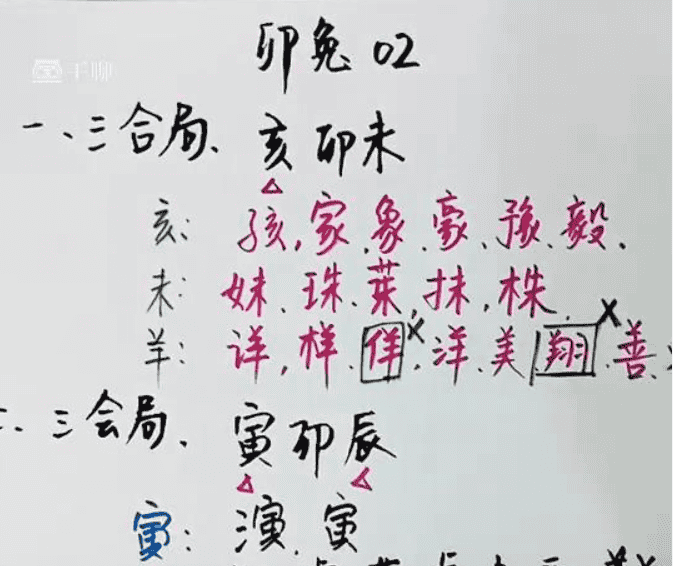 千聊
卯兔02
一、三合局、亥卯未
亥: 孩,家、象、豪、豫、毅、
未: 妹、珠、茱,抹,株、
羊: 详,样、佯X、洋、美翔X、善、
二、三会局、寅卯辰
寅: 演、寅